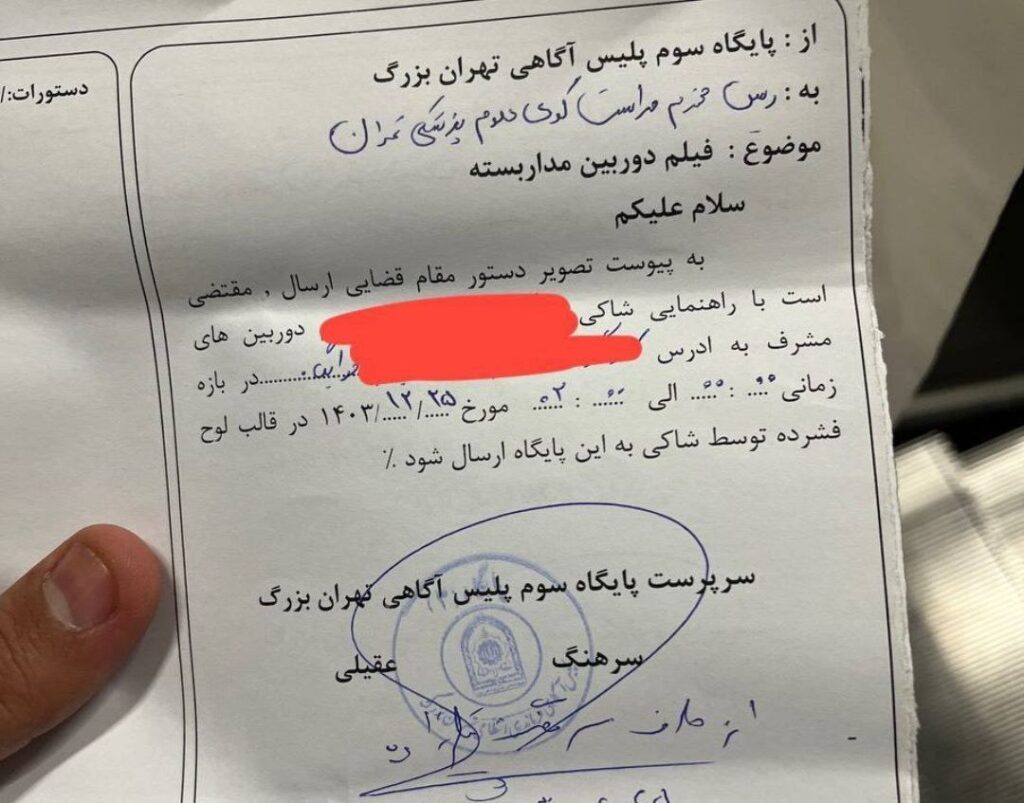 دستورات:/
از : پایگاه سوم پلیس آگاهی تهران بزرگ
به : محترم حراست کوی علوم پزشکی تهران
موضوع : فیلم دوربین مداربسته
سلام علیکم
به پیوست تصویر دستور مقام قضایی ارسال , مقتضی
است با راهنمایی شاکی دوربین های
مشرف به ادرس در بازه
زمانی ۰۰ : ۰۰ الی ۰۰ : ۰۲ مورخ ۲۵/۱۲/۱۴۰۳ در قالب لوح
فشرده توسط شاکی به این پایگاه ارسال شود ٪
سرپرست پایگاه سوم پلیس آگاهی تهران بزرگ
سرهنگ عقیلی
از طرف